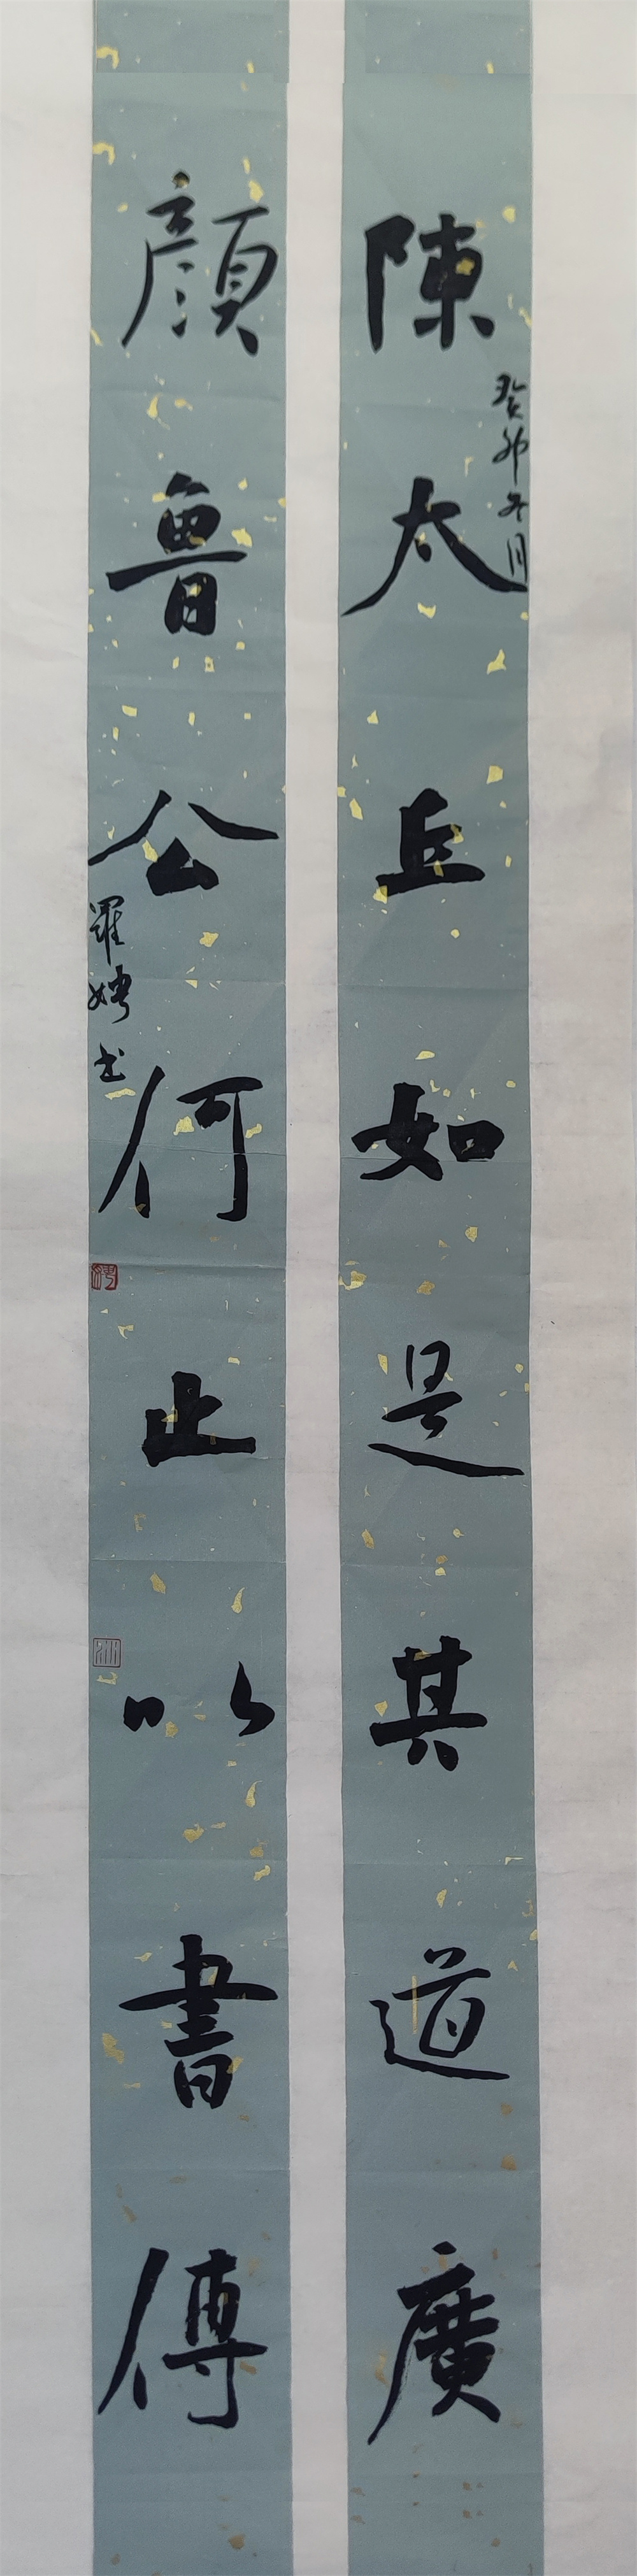 陳太丘如是其道廣
癸卯冬月
顏魯公何止以書傳
羅娉書